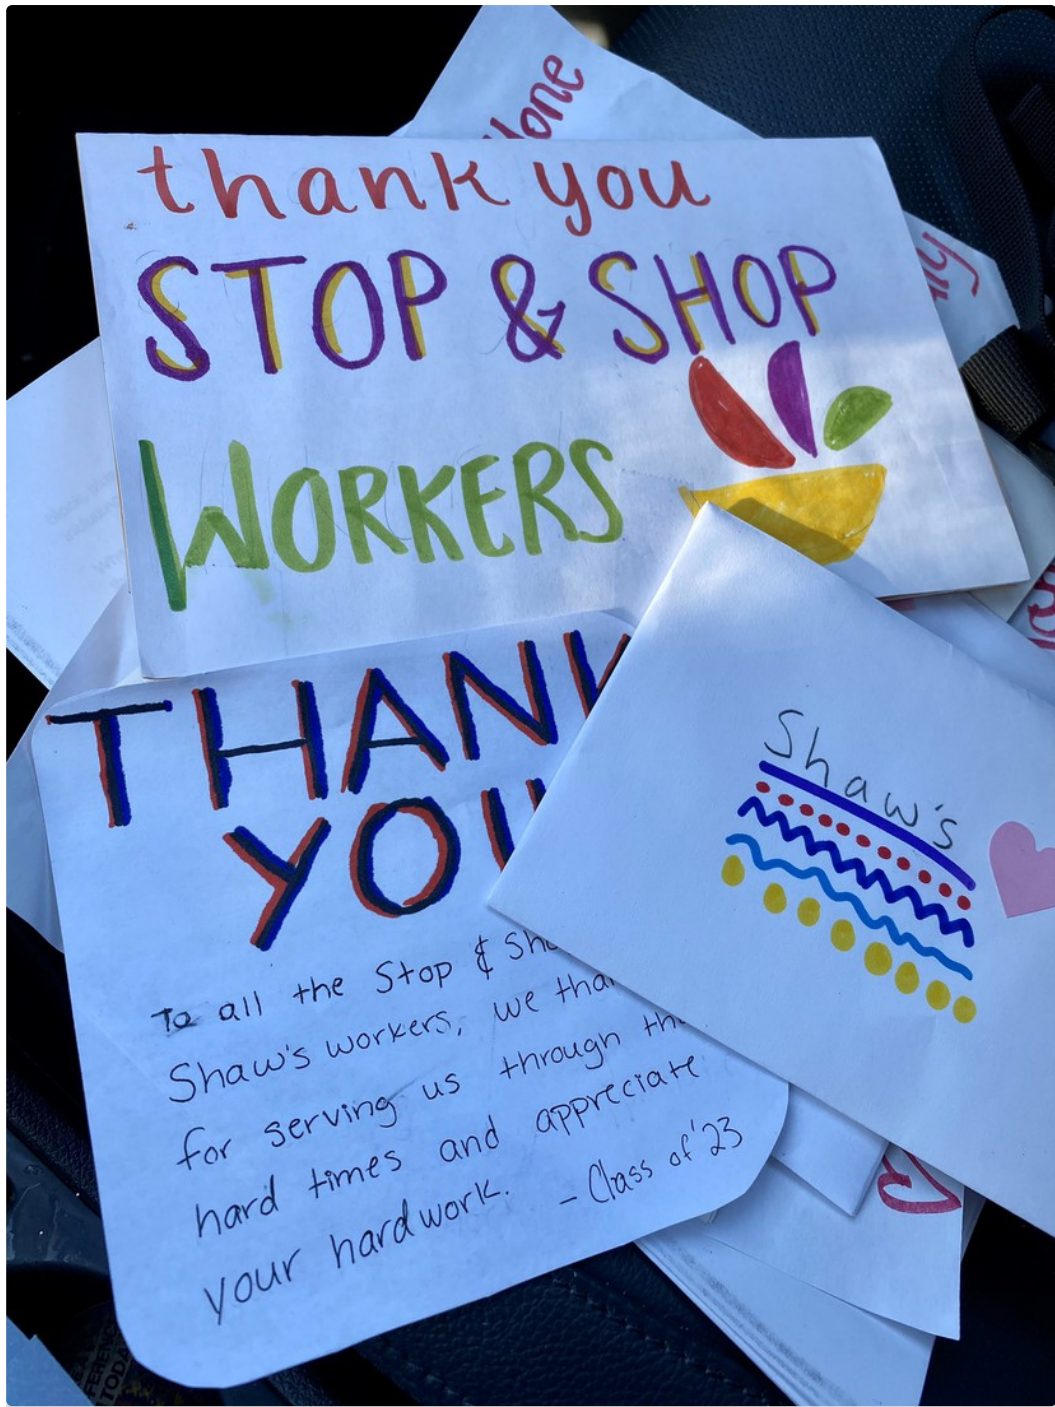 thank you
STOP & SHOP
WORKERS
THANK
YOU
Shaw's
To all the Stop & Sho
Shaw's workers, we than
for serving us through the
hard times and appreciate
your hardwork.
- Class of '23